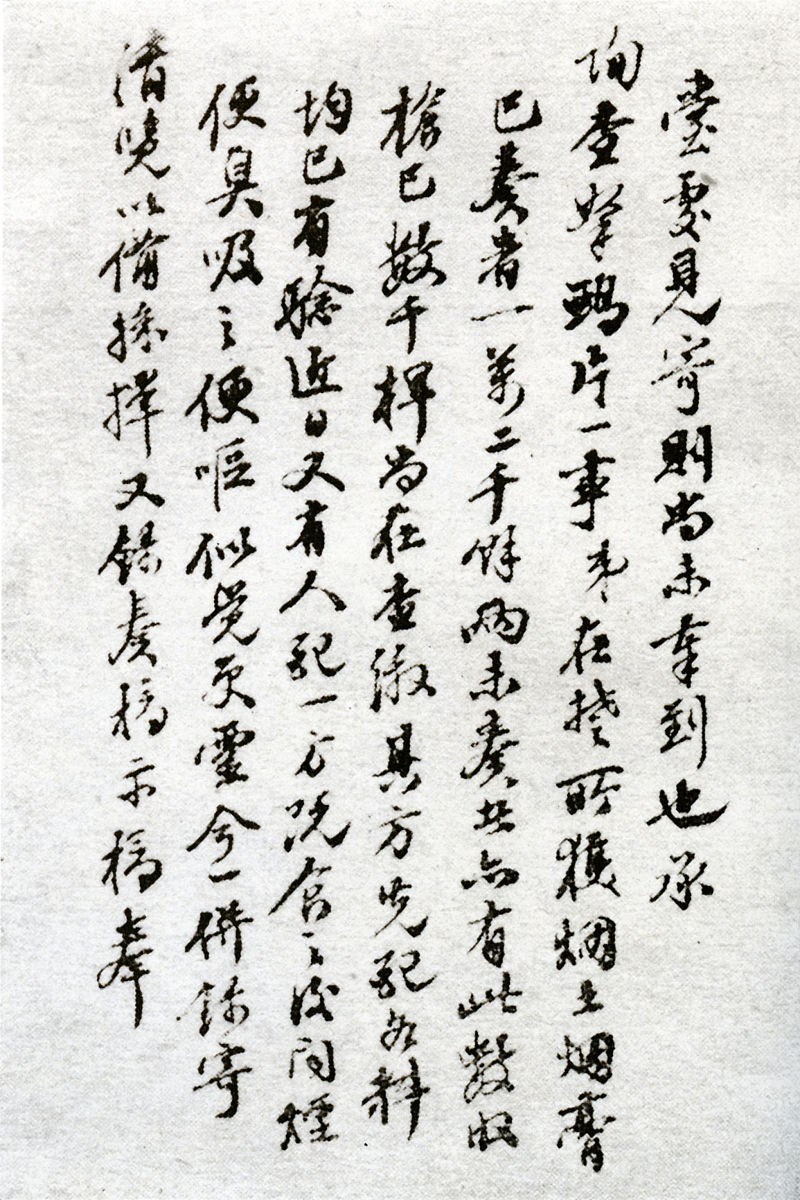 堂處見寄則尚未奉到也承
询查拏鴉片一事弟在楚所獲烟土烟膏
已奏者一萬二千餘兩未奏其亦有此數收
槍已數千桿尚在查繳其方先配各料
均已有驗近日又有人配一方洗含之後聞煙
便臭吸之便嘔似覺更靈今一併錄寄
清覽以備採擇又錄奏稿示稿奉